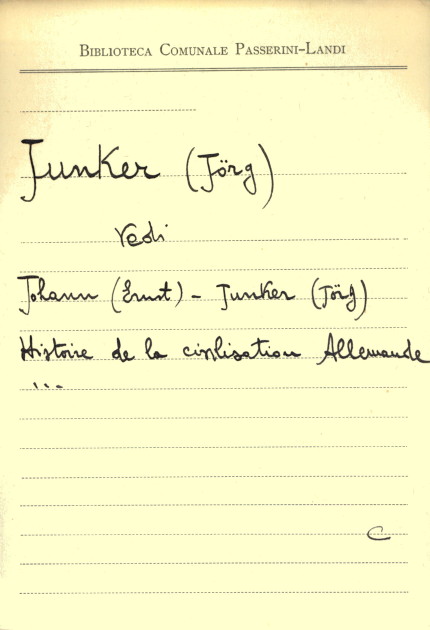 BIBLIOTECA COMUNALE PASSERINI-LANDI
Junker (Jörg)
Vedi
Johann (Ernst) - Junker (Jörg)
Histoire de la civilisation Allemande
...
C